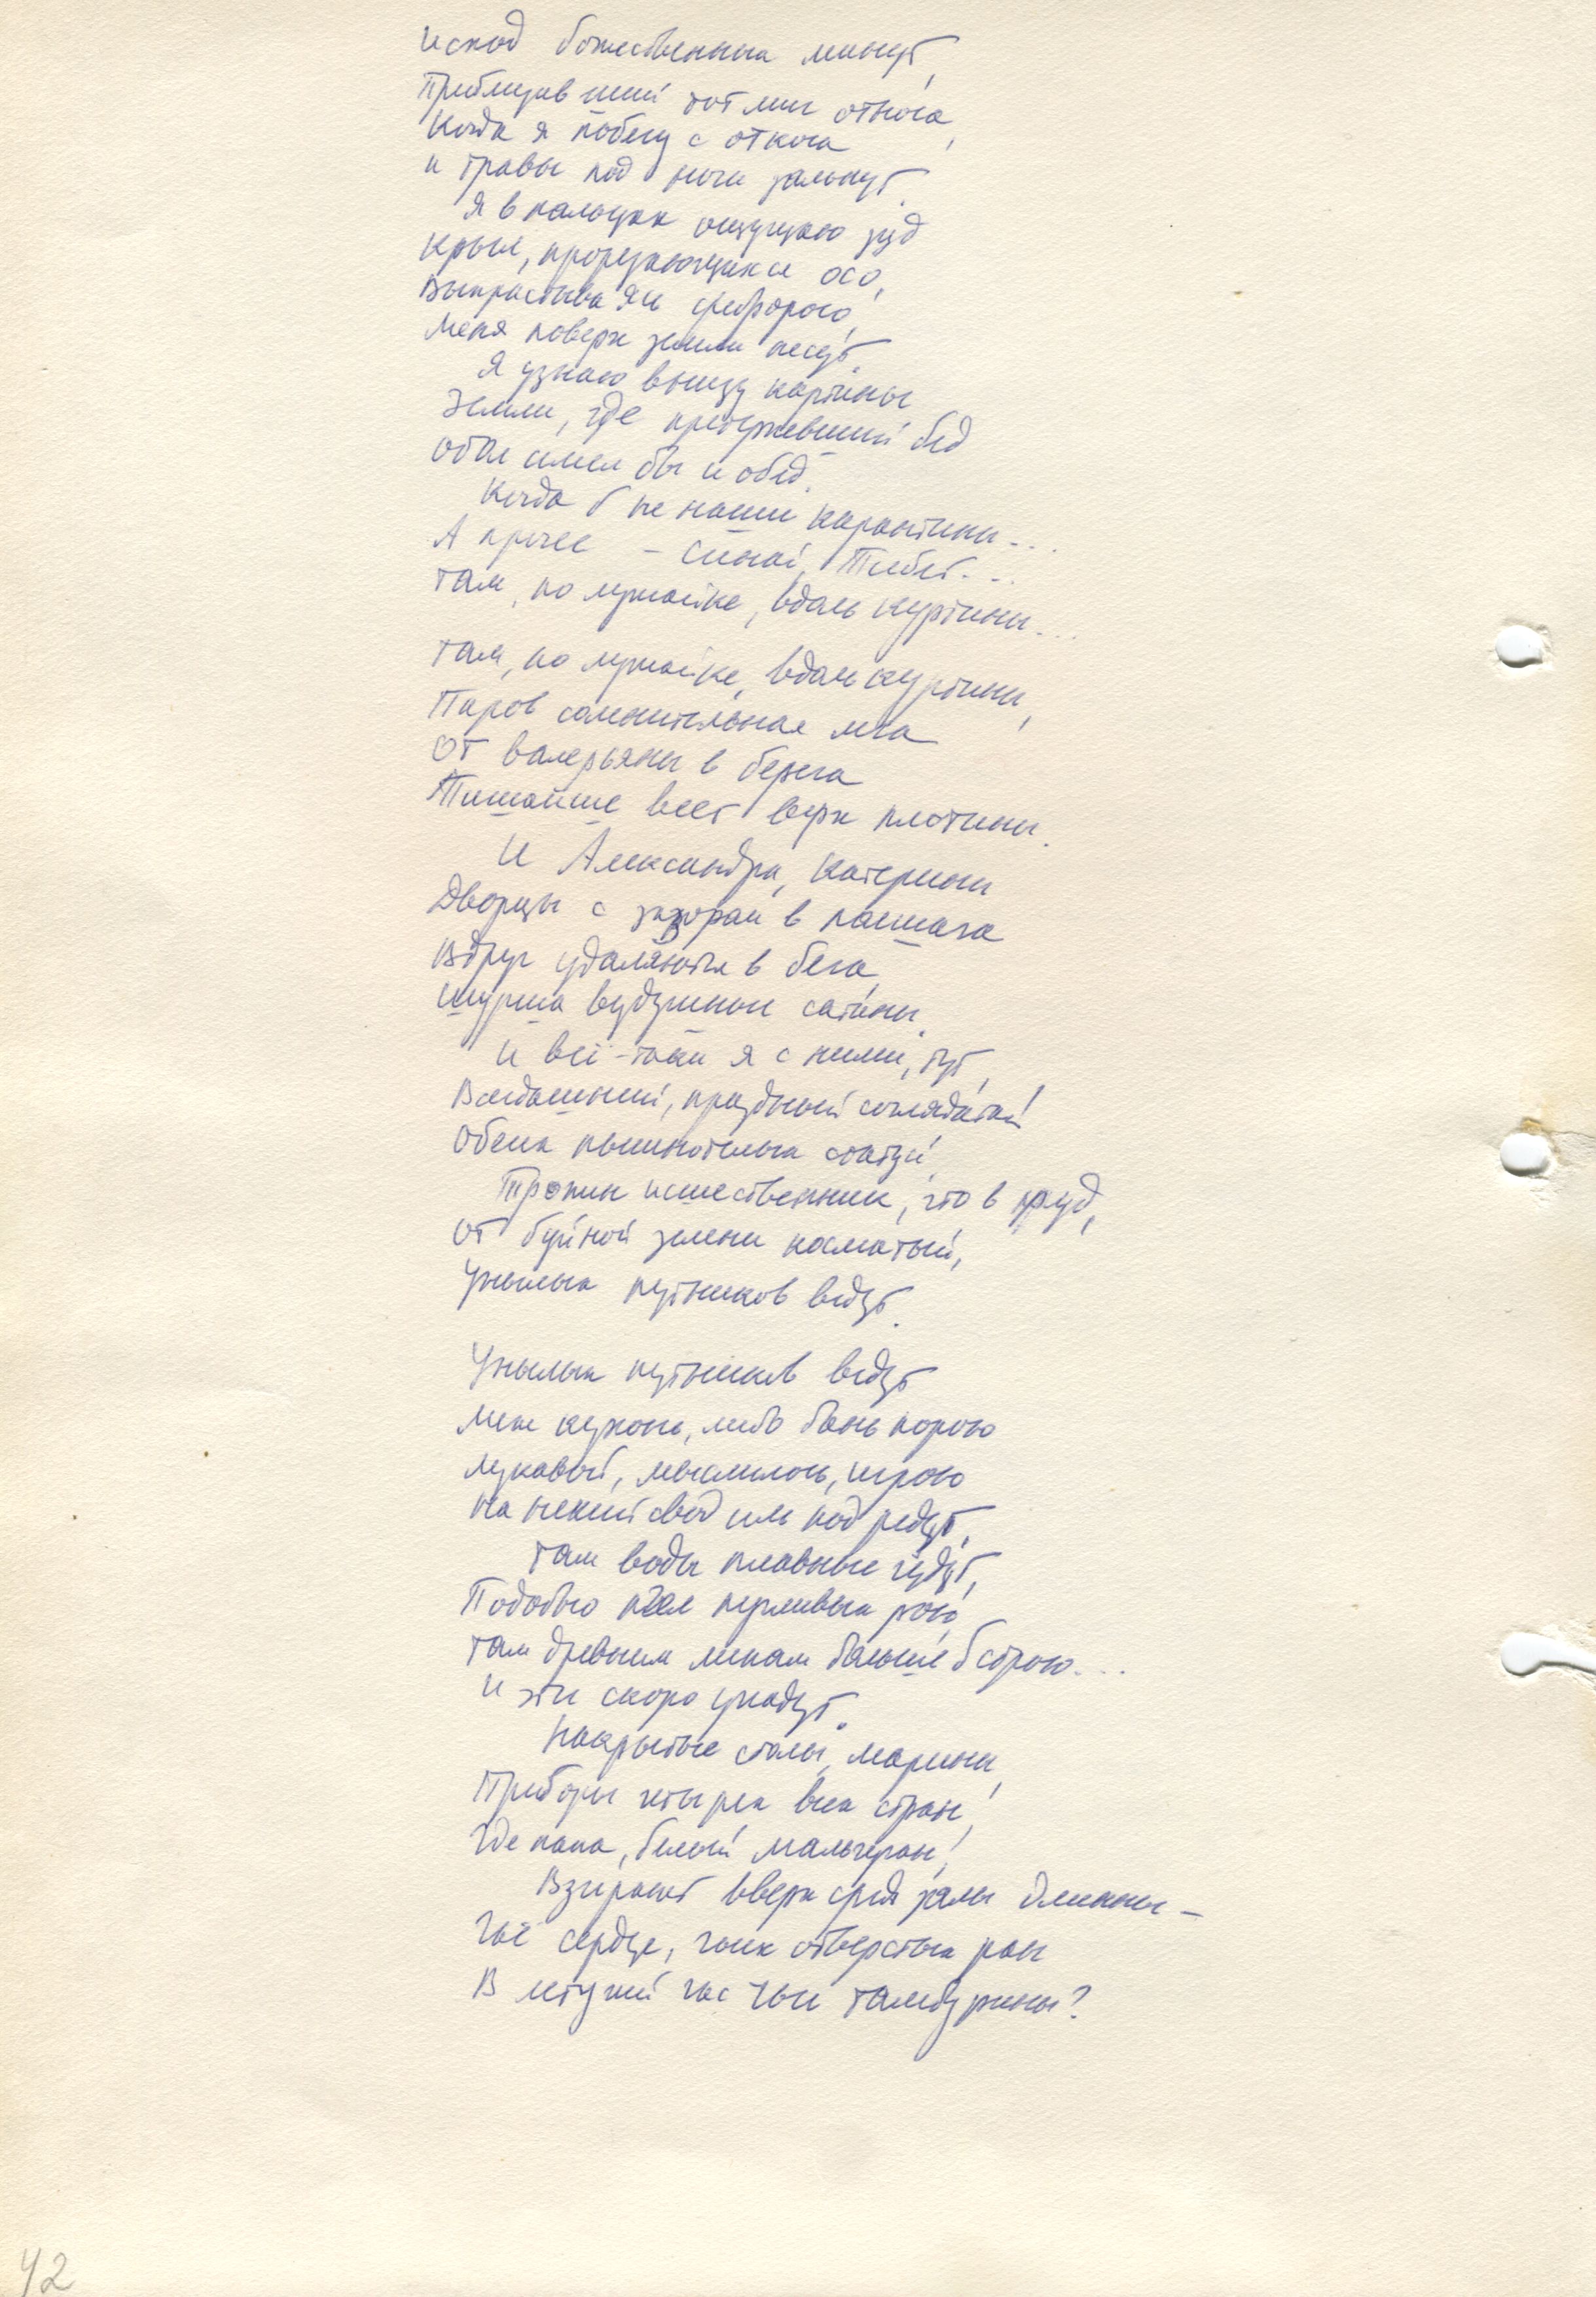 исход божественных минут,
Приблизивший тот миг отлога,
Когда я побегу с отлога
и травы под ноги зальнут.
Я в пальцах ощущаю зуд
Крыл, прорезающихся осо,
Выпрастываясь
Меня поверх земли несут.
Я узнаю внизу картины
Земли, где претерпевший бед
Обол имел бы и обед,
Когда б не наши карантины...
А прочее – Синай, Тибет...
Там, по лужайке, вдаль куртины...
Там, по лужайке, вдаль куртины,
Паров сомнительная мга
От валерьяны в берега
Тишайше веет верх плотины.
И Александра, Катерины
Дворцы с зазорами в
Вдруг удаляются в бега,
Шурша сатины.
И всё-таки я с ними, тут,
Всегдашний, праздный соглядатай
Обеих пышнотелых статуй,
Тропин ищественник, что в пруд,
От буйной зелени косматый,
Унылых путников ведут.
Унылых путников ведут
Меж кухонь, либо бань порою
Лукавой, мыслилось, игрою
На некий свод иль под редут.
Там воды плавные гудут,
Подобно пчел пугливых рою,
Там древним липам больше б строю...
И эти скоро упадут.
Накрытые столы, марины,
Приборы четырех всех стран,
Где папа, белый
Взирает вверх средь залы длинны –
Чьё сердце, чьих отверстых ран
В летучий час чьи тамбурины?
42